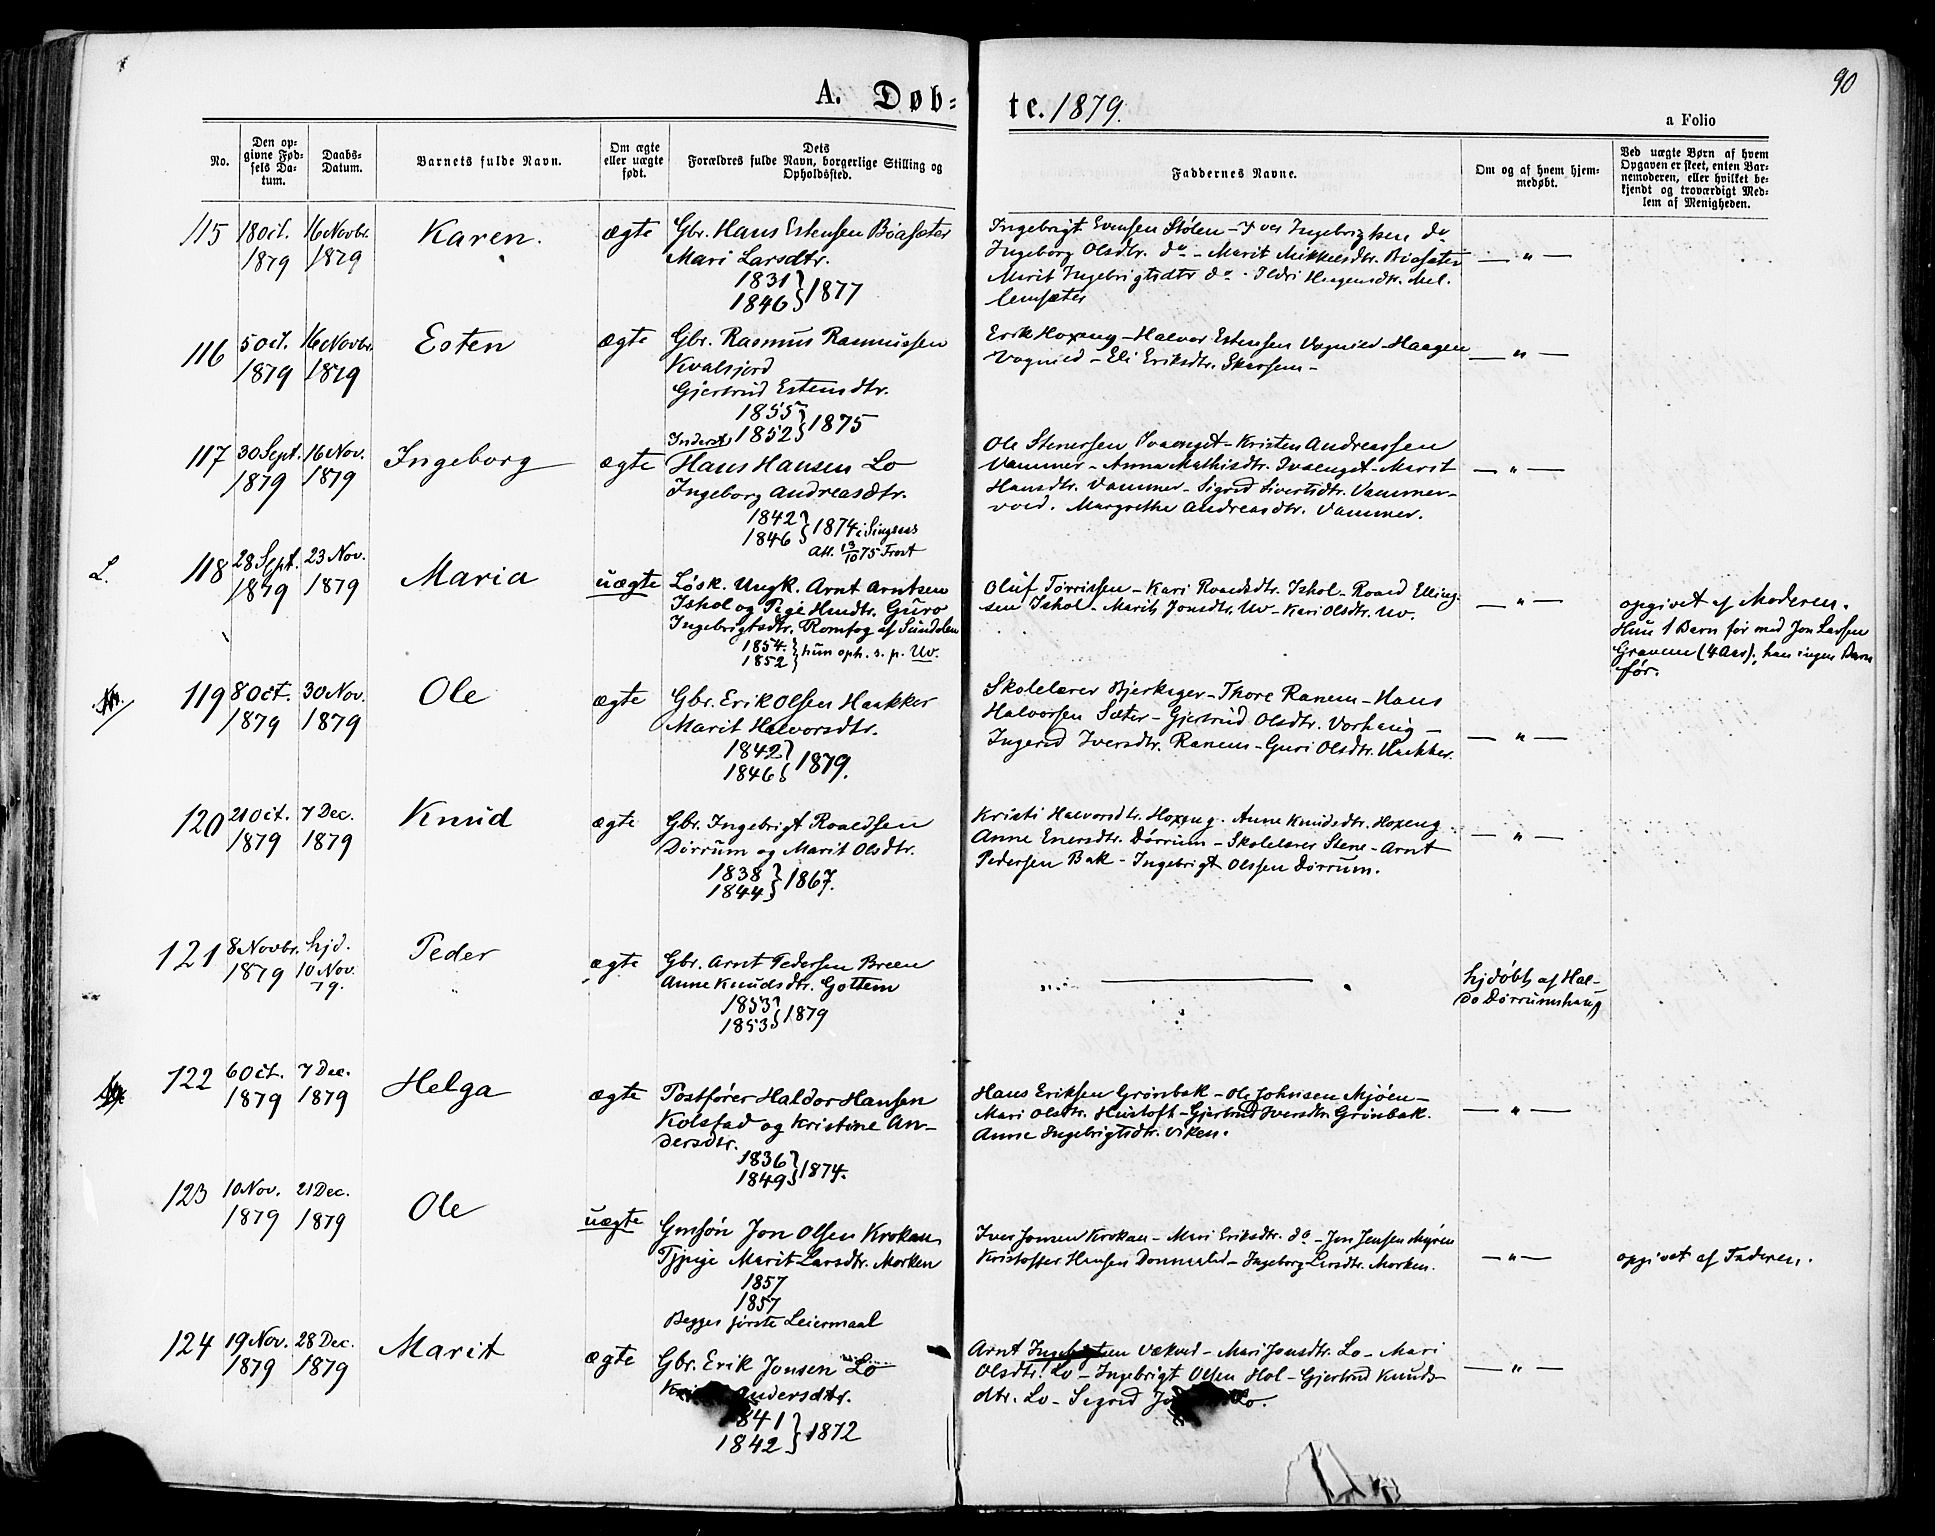 90
A. Døb-
te. 1879.
a Folio
No.
Den op-
givne Fød-
sels Da-
tum.
Daabs-
Datum.
Barnets fulde Navn.
Om ægte
eller uægte
født.
Dets
Forældres fulde Navn, borgerlige Stilling og
Opholdssted.
Faddernes Navne.
Om og af hvem hjem-
medøbt.
Ved uægte Børn af hvem
Opgaven er skeet, enten Bar-
nemoderen, eller hvilket be-
kjendt og troværdigt Med-
lem af Menigheden.
115
18 Oct.
1879
16 Novbr.
1879
Karen.
ægte
Gbr. Hans Estensen Bøasæter
Mari Larsdtr.
1831
1846 } 1877
Ingebrigt Evensen Stølen - Iver Ingebrigtsen do
Ingeborg Olsdtr. do - Marit Mikkelsdtr. Bøasæter
Marit Ingebrigtsdtr do - Ildri Haagensdtr. Mel-
lemsæter
— " —
116
5 Oct.
1879
16 Novbr.
1879
Esten
ægte
Gbr. Rasmus Rasmussen
Kvalsjord
Gjertrud Estensdtr.
1855
1852 } 1875
Erik Hoxeng - Halvor Estensen Vognild - Haagen
Vognild - Eli Eriksdtr. Skorsem -
— " —
117
30 Sept.
1879
16 Nov.
1879
Ingeborg
ægte
Inderst
Hans Hansen Lo
Ingeborg Andreasdtr.
1842
1846 } 1874 i Singsaas
Att. 13/10 75 Frost
Ole Stenersen Ivaenget - Kristen Andreassen
Vammer - Anna Mathisdtr. Ivaenget - Marit
Hansdtr. Vammer - Sigrid Sivertsdtr. Vammer-
vold. Margrethe Andreasdtr. Vammer.
— " —
L.
118
28 Sept.
1879
23 Nov.
1879
Maria
uægte
Løsk. Ungk. Arnt Arntsen
Ishol og Pige Husdtr. Guro
Ingebrigtsdtr. Romfog af Sundalen
1854
1852 } hun oph. s. p. Uv.
Oluf Tørrissen - Kari Roaldsdtr. Ishol - Roald Elling-
sen Ishol - Marit Jonsdtr. Uv - Kari Olsdtr. Uv.
— " —
opgivet af Moderen.
Hun 1 Barn før med Jon Larsen
Gravem (4 Aar), han ingen Barn
før.
119
8 Oct.
1879
30 Nov.
1879
Ole
ægte
Gbr. Erik Olsen Haakker
Marit Halvorsdtr.
1842
1846 } 1879.
Skolelærer Bjerkager - Thore Ranem - Hans
Halvorsen Sæter - Gjertrud Olsdtr. Vorhaug -
Ingerid Iversdtr. Ranem - Guri Olsdtr. Haakker.
— " —
120
21 Oct.
1879
7 Dec.
1879
Knud
ægte
Gbr. Ingebrigt Roaldsen
Dørrum og Marit Olsdtr.
1838
1844 } 1867.
Kristi Halvorsdtr. Hoxeng. Anne Knudsdtr. Hoxeng
Anne Enersdtr. Dørrum - Skolelærer Stene - Arnt
Pedersen Bak - Ingebrigt Olssen Dørrum.
— " —
121
8 Novbr.
1879
hjd.
10 Nov.
79.
Peder
ægte
Gbr. Arnt Pedersen Bræen
Anne Knudsdtr. Gottem
1853
1853 } 1879
hjdøbt af Hal-
do Dørrumshaug
122
6 Oct.
1879
7 Dec.
1879
Helga
ægte
Postfører Haldor Hansen
Kolstad og Kristine An-
dersdtr.
1836
1849 } 1874.
Hans Eriksen Grønbak - Ole Johnsen Mjøen -
Mari Olsdtr. Hustoft - Gjertrud Iversdtr. Grønbak.
Anne Ingebrigtsdtr. Viken.
— " —
123
10 Nov.
1879
21 Dec.
1879
Ole
uægte
Gmsøn Jon Olsen Krokan
Tjpige Marit Larsdtr. Morken
1857
1857
Begges første Leiermaal
Iver Jonsen Krokan - Mari Eriksdtr. do - Jon Jensen Myren
Kristoffer Hansen Donnali - Ingeborg Larsdtr. Morken.
— " —
opgivet af Faderen.
124
19 Nov.
1879
28 Dec.
1879
Marit
ægte
Gbr. Erik Jonsen Lo
Andersdtr.
1841
1842 } 1872
Arnt Ingebrigtsen Vækvid - Mari Jonsdtr. Lo - Mari
Olsdtr. Lo - Ingebrigt Olsen Hol - Gjertrud Knuds-
dtr. Lo - Sigrid Lo.
— " —